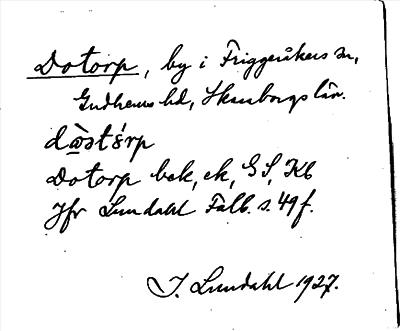 Dotorp, by i Friggeråkers sn,
Gudhems hd, Skaraborgs län.
Dotorp bek, ek, GS, Kb
Jfr Lundahl Falb. s. 49 f.
I. Lundahl 1927.